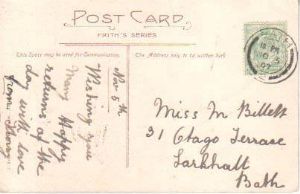 POST CARD
FRITH'S SERIES
This Space may be used for Communication.
The Address only to be written here.
Nov 5th
Wishing you
Many Happy
returns of the
day with love
from
Miss M Billett
31 Otago Terrace
Larkhall
Bath